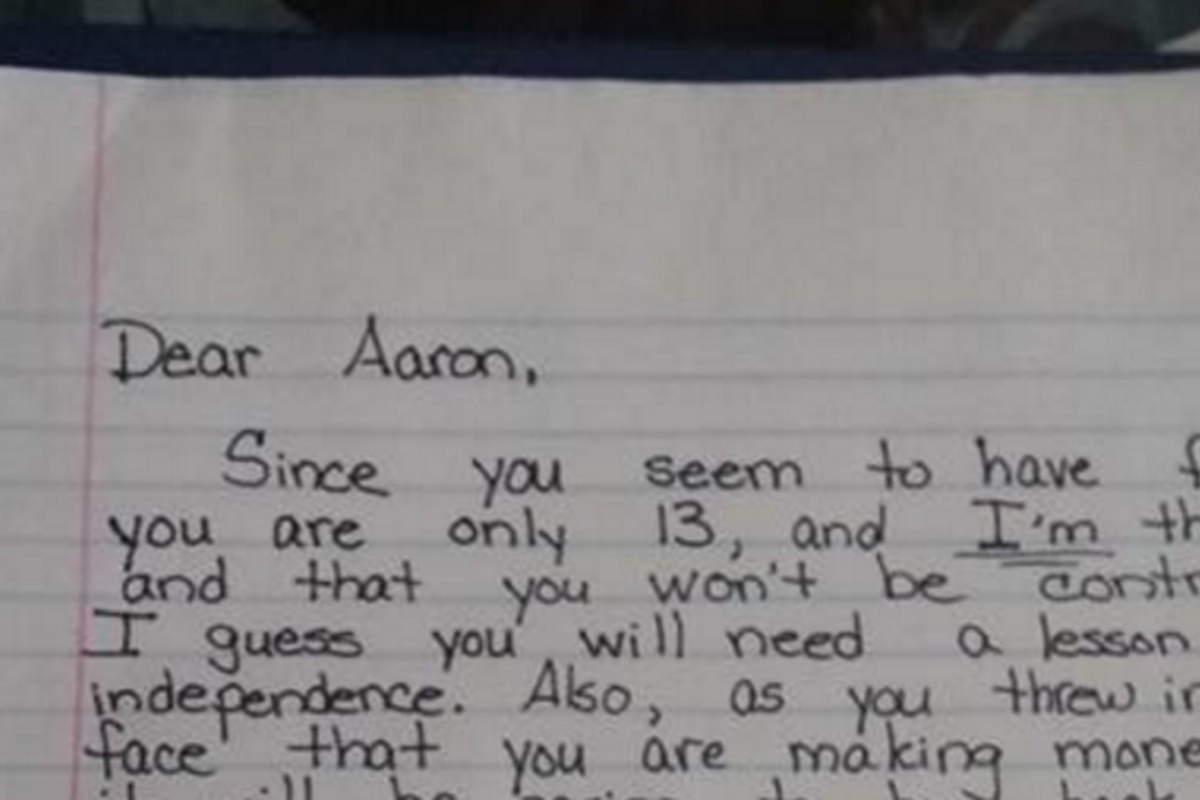 Dear Aaron,
Since you seem to have f
you are only 13, and I'm th
and that you won't be contr
I guess you will need a lesson
independence. Also, as you threw in
face that you are making mone